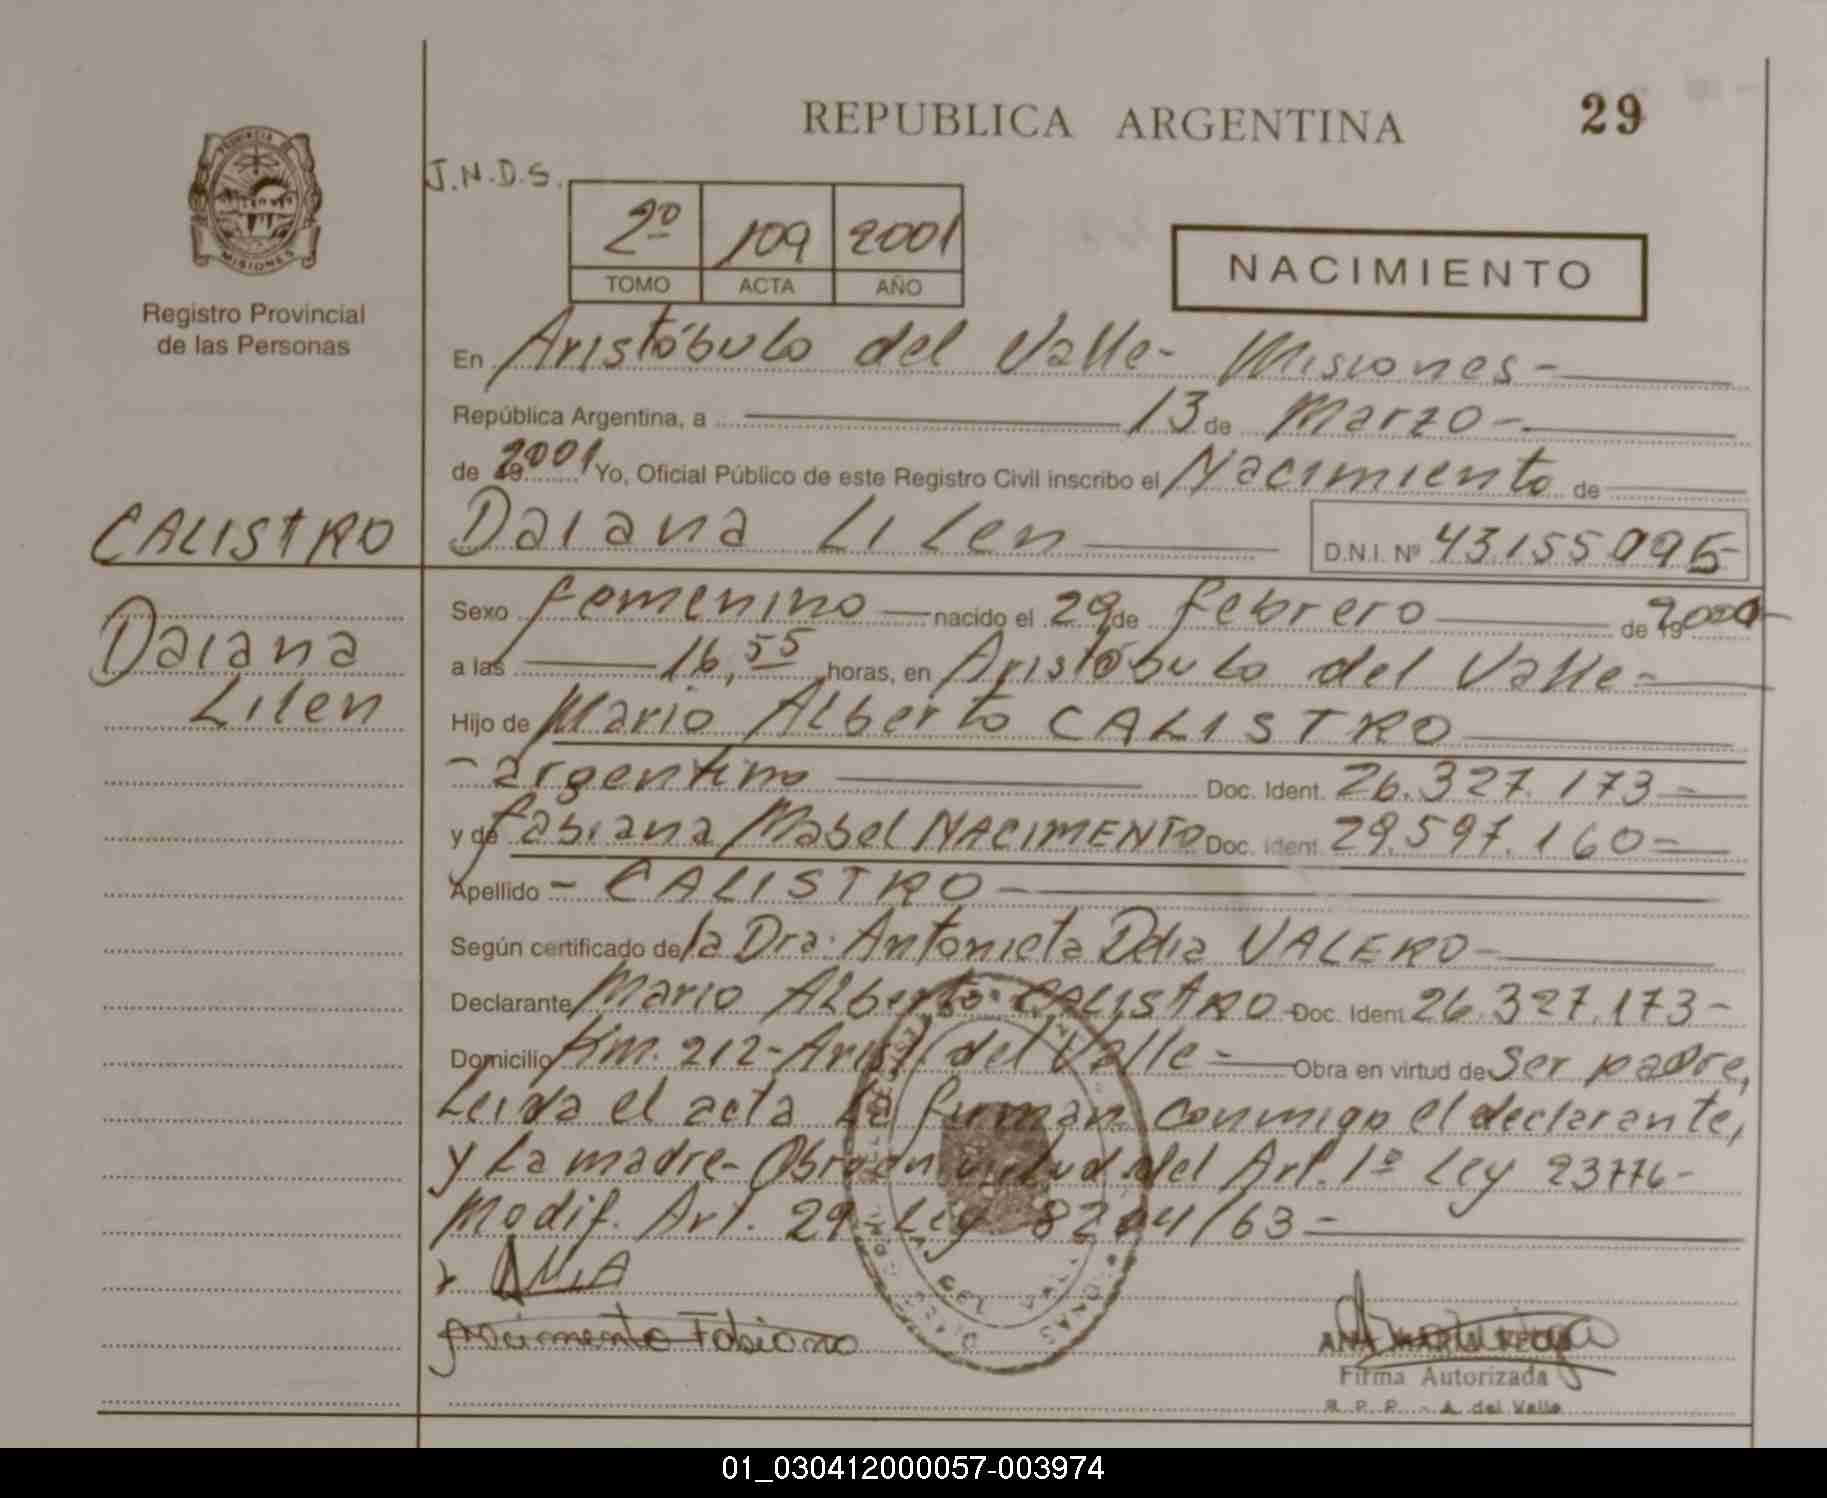 REPUBLICA ARGENTINA
29
PROVINCIA
MISIONES
Registro Provincial
de las Personas
J.N.D.S.
2º 109 2001
TOMO ACTA AÑO
NACIMIENTO
En Aristóbulo del Valle- Misiones-
República Argentina, a 13 de Marzo-
de 2001 Yo, Oficial Público de este Registro Civil inscribo el Nacimiento de
CALISTRO
Daiana Lilen
D.N.I. Nº 43.155.095-
Daiana
Lilen
Sexo femenino nacido el 29 de febrero de 2000-
a las 16,55 horas, en Aristóbulo del Valle-
Hijo de Mario Alberto CALISTRO
- argentino Doc. Ident. 26.327.173-
y de fabiana Mabel NACIMENTO Doc. ident. 29.597.160-
Apellido - CALISTRO-
Según certificado de la Dra. Antonieta Delia VALERO-
Declarante Mario Alberto CALISTRO- Doc. Ident 26.327.173-
Domicilio Km. 212- Arist. del Valle- Obra en virtud de Ser padre,
Leida el acta la firman conmigo el declarante,
y la madre- Obra en virtud del Art. 1º Ley 23776-
Modif. Art. 29- Ley 8204/63-
Nacimento Fabiana
ANA MARIA
Firma Autorizada
R. P. P. - A. del Valle
01_030412000057-003974